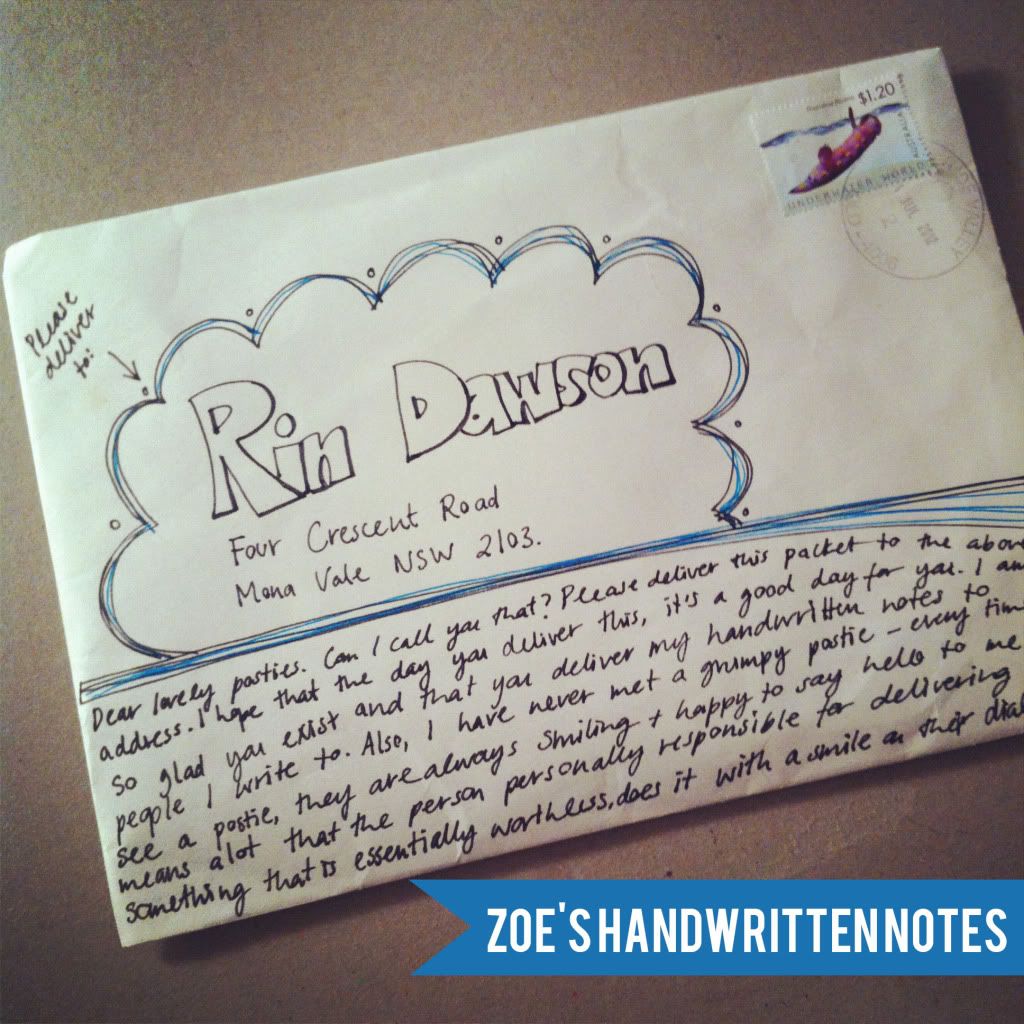 $1.20
AUSTRALIA
UNDERWATER WORLD
2012
Please
deliver
to:
Rin Dawson
Four Crescent Road
Mona Vale NSW 2103.
Dear lovely posties. Can I call you that? Please deliver this packet to the above
address. I hope that the day you deliver this, it's a good day for you. I am
so glad you exist and that you deliver my handwritten notes to
people I write to. Also, I have never met a grumpy postie - every time
see a postie, they are always smiling + happy to say hello to me
means alot that the person personally responsible for delivering
something that is essentially worthless, does it with a smile on their dial
ZOE'S HANDWRITTEN NOTES